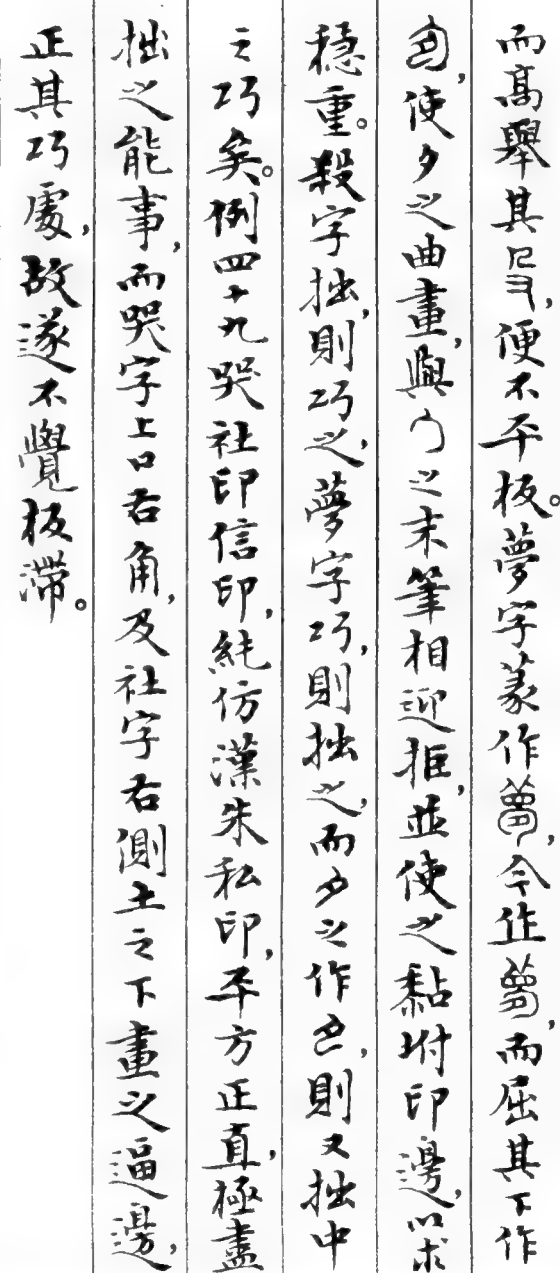 而高舉其𠬝,便不平板。夢字篆作夢,今作夢,而屈其下作
,使夕之曲畫,與勹之末筆相迎拒,並使之黏坿印邊,以求
穩重。殺字拙,則巧之,夢字巧,則拙之,而夕之作,則又拙中
之巧矣。例四十九哭社印信印,純仿漢朱私印,平方正直,極盡
拙之能事,而哭字上口右角,及社字右側土之下畫之逼邊,
正其巧處,故遂不覺板滯。